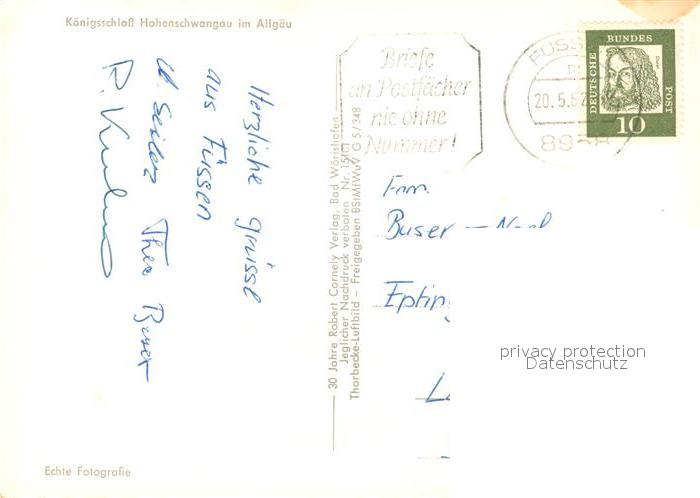 Königsschloß Hohenschwangau im Allgäu
Herzliche Grüsse
aus Füssen
Theo Buser
30 Jahre Robert Cornely Verlag, Bad Wörishofen
Jeglicher Nachdruck verboten Nr.
Thorbecke-Luftbild – Freigegeben BStMfWuV G 5/348
Briefe
an Postfächer
nie ohne
Nummer!
FÜSSEN
20.5.62
DEUTSCHE BUNDES POST
10
Buser –
privacy protection
Datenschutz
Echte Fotografie